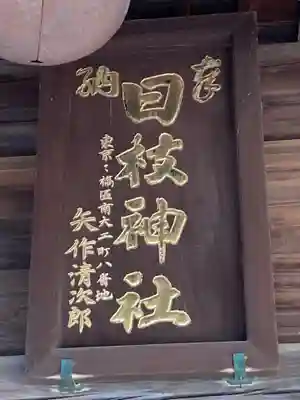 奉納
日枝神社
東京〻橋區南大二町八番地
矢作清次郎